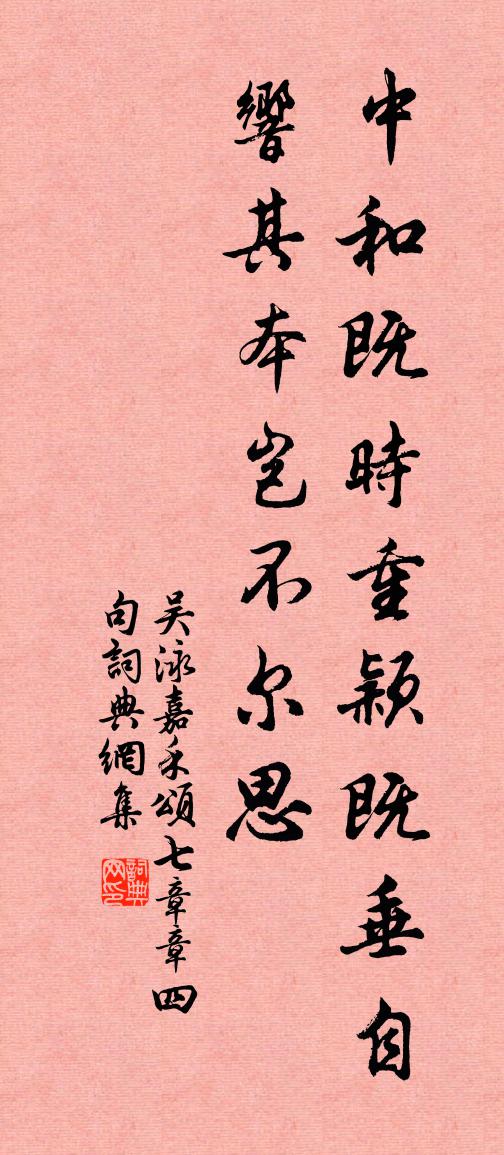 中和既時重颖既垂自
響其本岂不尔思
吴泳嘉禾頌七章章四
句詞典網集
詞典
网印